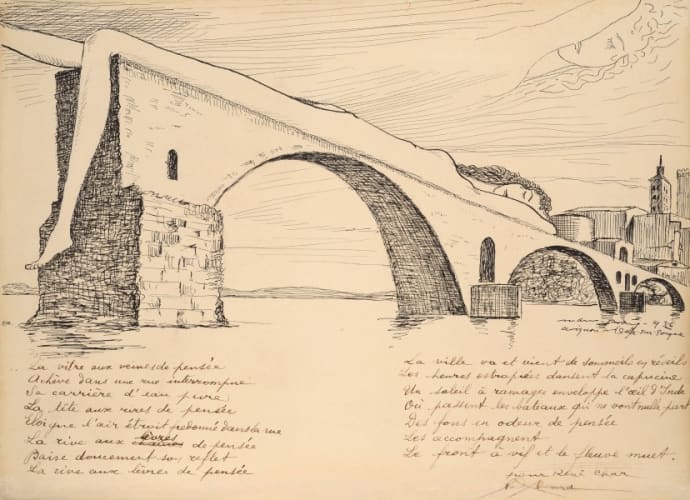 man Ray - 9.36
avignon - L'Isle sur Sorgue
La vitre aux veines de pensée
Achève dans une rue interrompue
Sa carrière d'eau pure
La tête aux rires de pensée
Eloigne l'air étroit redonné dans la rue
La rive aux lèvres de pensée
Baise doucement son reflet
La rive aux lèvres de pensée
La ville va et vient de sommeils en réveils
Les heures estropiées dansent la capucine
Un soleil à ramages enveloppe l'œil d'Inde
Où passent les bateaux qui ne vont nulle part
Des fous en odeur de pensée
Les accompagnent
Le front à vif et le fleuve muet.
pour René Char